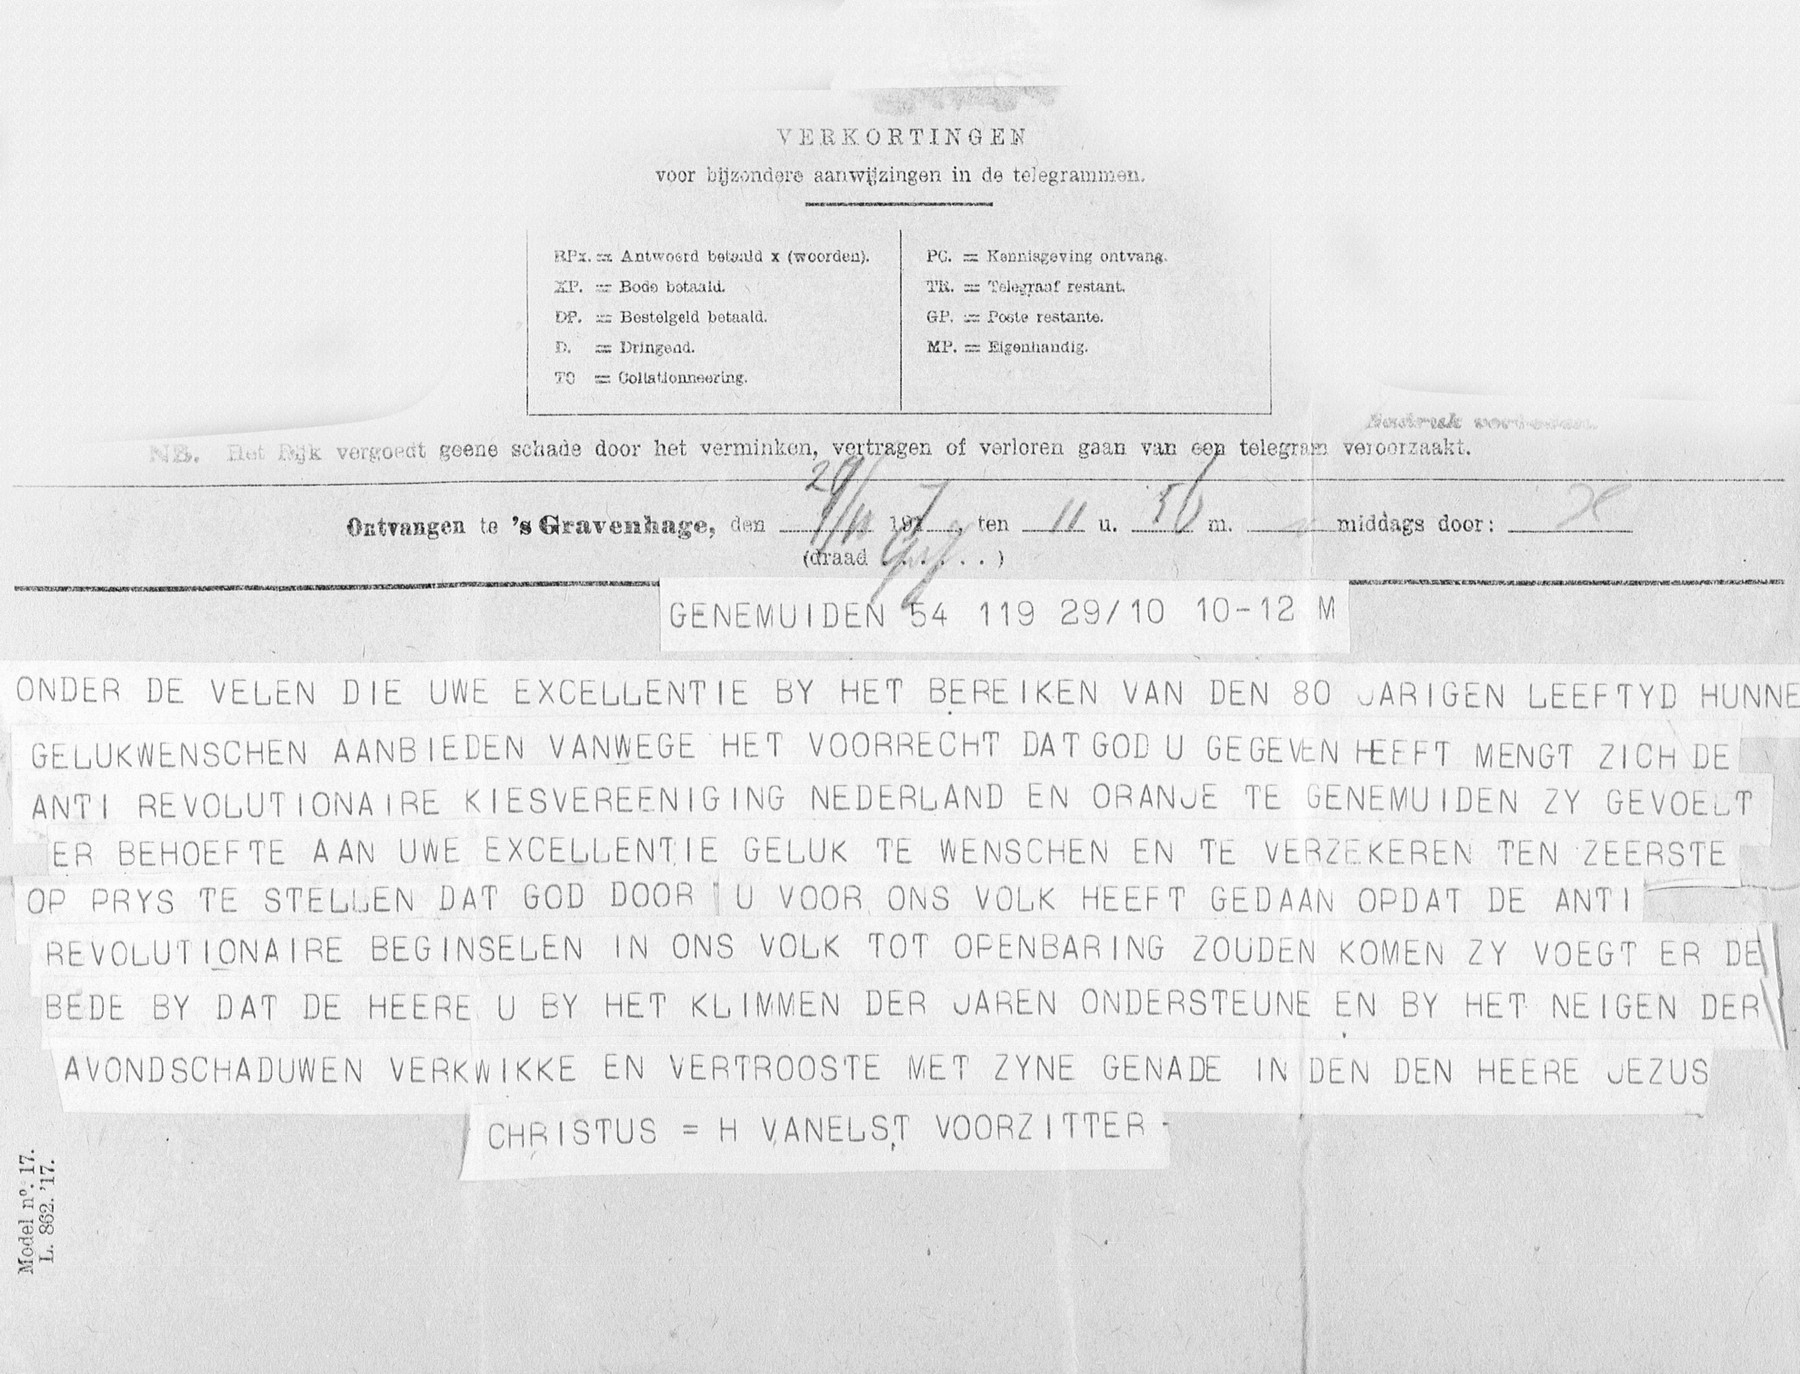 VERKORTINGEN
voor bijzondere aanwijzingen in de telegrammen.
RPx. = Antwoord betaald x (woorden).
XP. = Bode betaald.
DP. = Bestelgeld betaald.
D. = Dringend.
TC = Collationneering.
PC. = Kennisgeving ontvang.
TR. = Telegraaf restant.
GP. = Poste restante.
MP. = Eigenhandig.
NB. Het Rijk vergoedt geene schade door het verminken, vertragen of verloren gaan van een telegram veroorzaakt.
Ontvangen te 's Gravenhage, den 29/10 1917, ten 11 u. 56 m. middags door:
(draad . . . . . . )
GENEMUIDEN 54 119 29/10 10-12 M
ONDER DE VELEN DIE UWE EXCELLENTIE BY HET BEREIKEN VAN DEN 80 JARIGEN LEEFTYD HUNNE
GELUKWENSCHEN AANBIEDEN VANWEGE HET VOORRECHT DAT GOD U GEGEVEN HEEFT MENGT ZICH DE
ANTI REVOLUTIONAIRE KIESVEREENIGING NEDERLAND EN ORANJE TE GENEMUIDEN ZY GEVOELT
ER BEHOEFTE AAN UWE EXCELLENTIE GELUK TE WENSCHEN EN TE VERZEKEREN TEN ZEERSTE
OP PRYS TE STELLEN DAT GOD DOOR U VOOR ONS VOLK HEEFT GEDAAN OPDAT DE ANTI
REVOLUTIONAIRE BEGINSELEN IN ONS VOLK TOT OPENBARING ZOUDEN KOMEN ZY VOEGT ER DE
BEDE BY DAT DE HEERE U BY HET KLIMMEN DER JAREN ONDERSTEUNE EN BY HET NEIGEN DER
AVONDSCHADUWEN VERKWIKKE EN VERTROOSTE MET ZYNE GENADE IN DEN DEN HEERE JEZUS
CHRISTUS = H VANELST VOORZITTER -
Model n°. 17.
L. 862. '17.